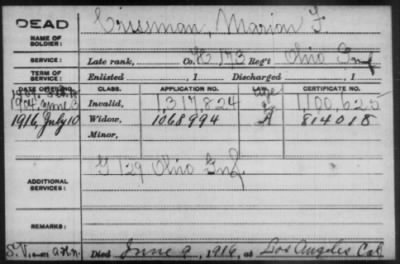 DEAD
NAME OF SOLDIER:
Crissman, Marion F.
SERVICE:
Late rank, Co. H, 173 Reg't Ohio Inf.
TERM OF SERVICE:
Enlisted , 1 Discharged , 1
DATE OF FILING. CLASS. APPLICATION NO. LAW. CERTIFICATE NO.
1904, June 3 Invalid, 1,317,824 1,100,625
1916, July 10 Widow, 1068994 A 814018
Minor,
ADDITIONAL SERVICES:
G 129 Ohio Inf.
REMARKS:
Died June 9, 1916, at Los Angeles Cal